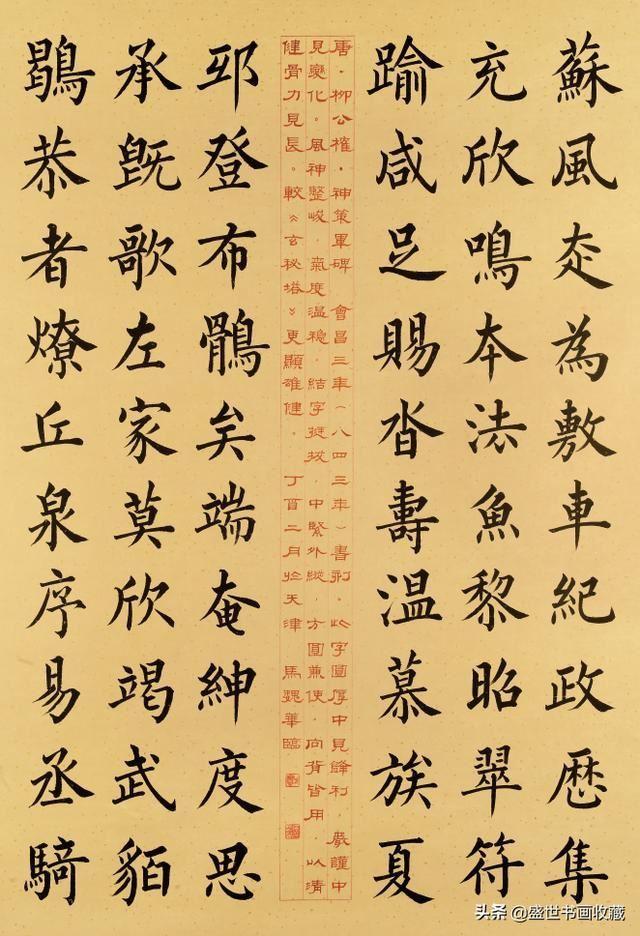 蘇風走為敷車紀政歷集
充欣鳴本法魚黎昭翠符
踰咸足賜沓壽温慕族夏
唐·柳公權·神策軍碑 會昌三年（八四三年）書刻。此字圓厚中見鋒利，嚴謹中
見變化。風神整峻，氣度温穩，結字挺拔，中緊外縱，方圓兼使，向背皆用，以清
健骨力見長。較《玄秘塔》更顯雄健。 丁酉二月於天津 馬魏華臨
邪登布鶻矣端奄紳度思
承既歌左家莫欣竭武貊
鶡恭者燎丘泉序易丞騎
头条 @盛世书画收藏